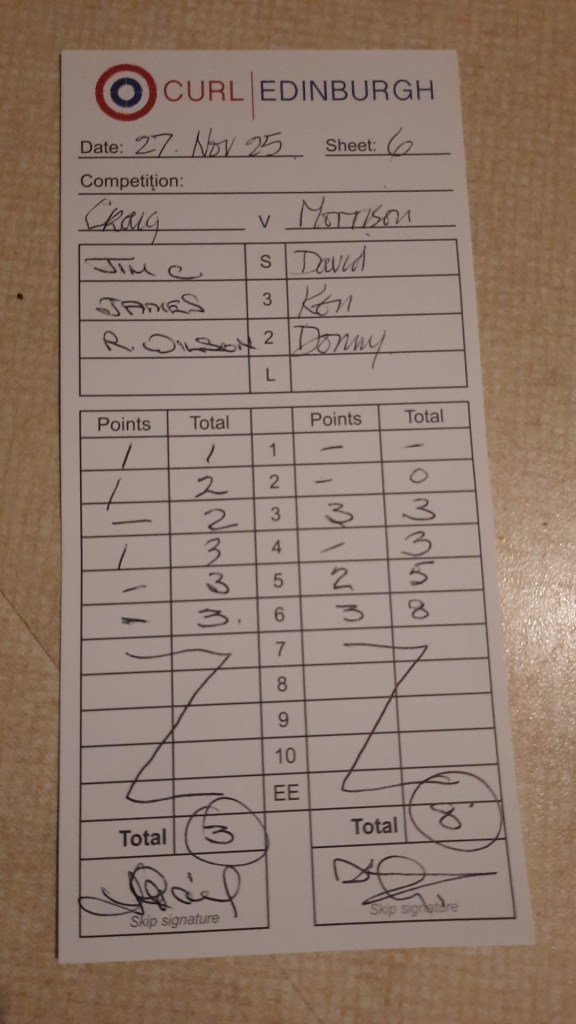 CURL | EDINBURGH
Date: 27. Nov 25 Sheet: 6
Competition:
Craig v Morrison
JIM C S David
JAMES 3 Ken
R. WILSON 2 Donny
L
Points Total Points Total
1 1 1 – –
1 2 2 – 0
– 2 3 3 3
1 3 4 – 3
– 3 5 2 5
– 3. 6 3 8
7
8
9
10
EE
Total 3 Total 8
Skip signature Skip signature